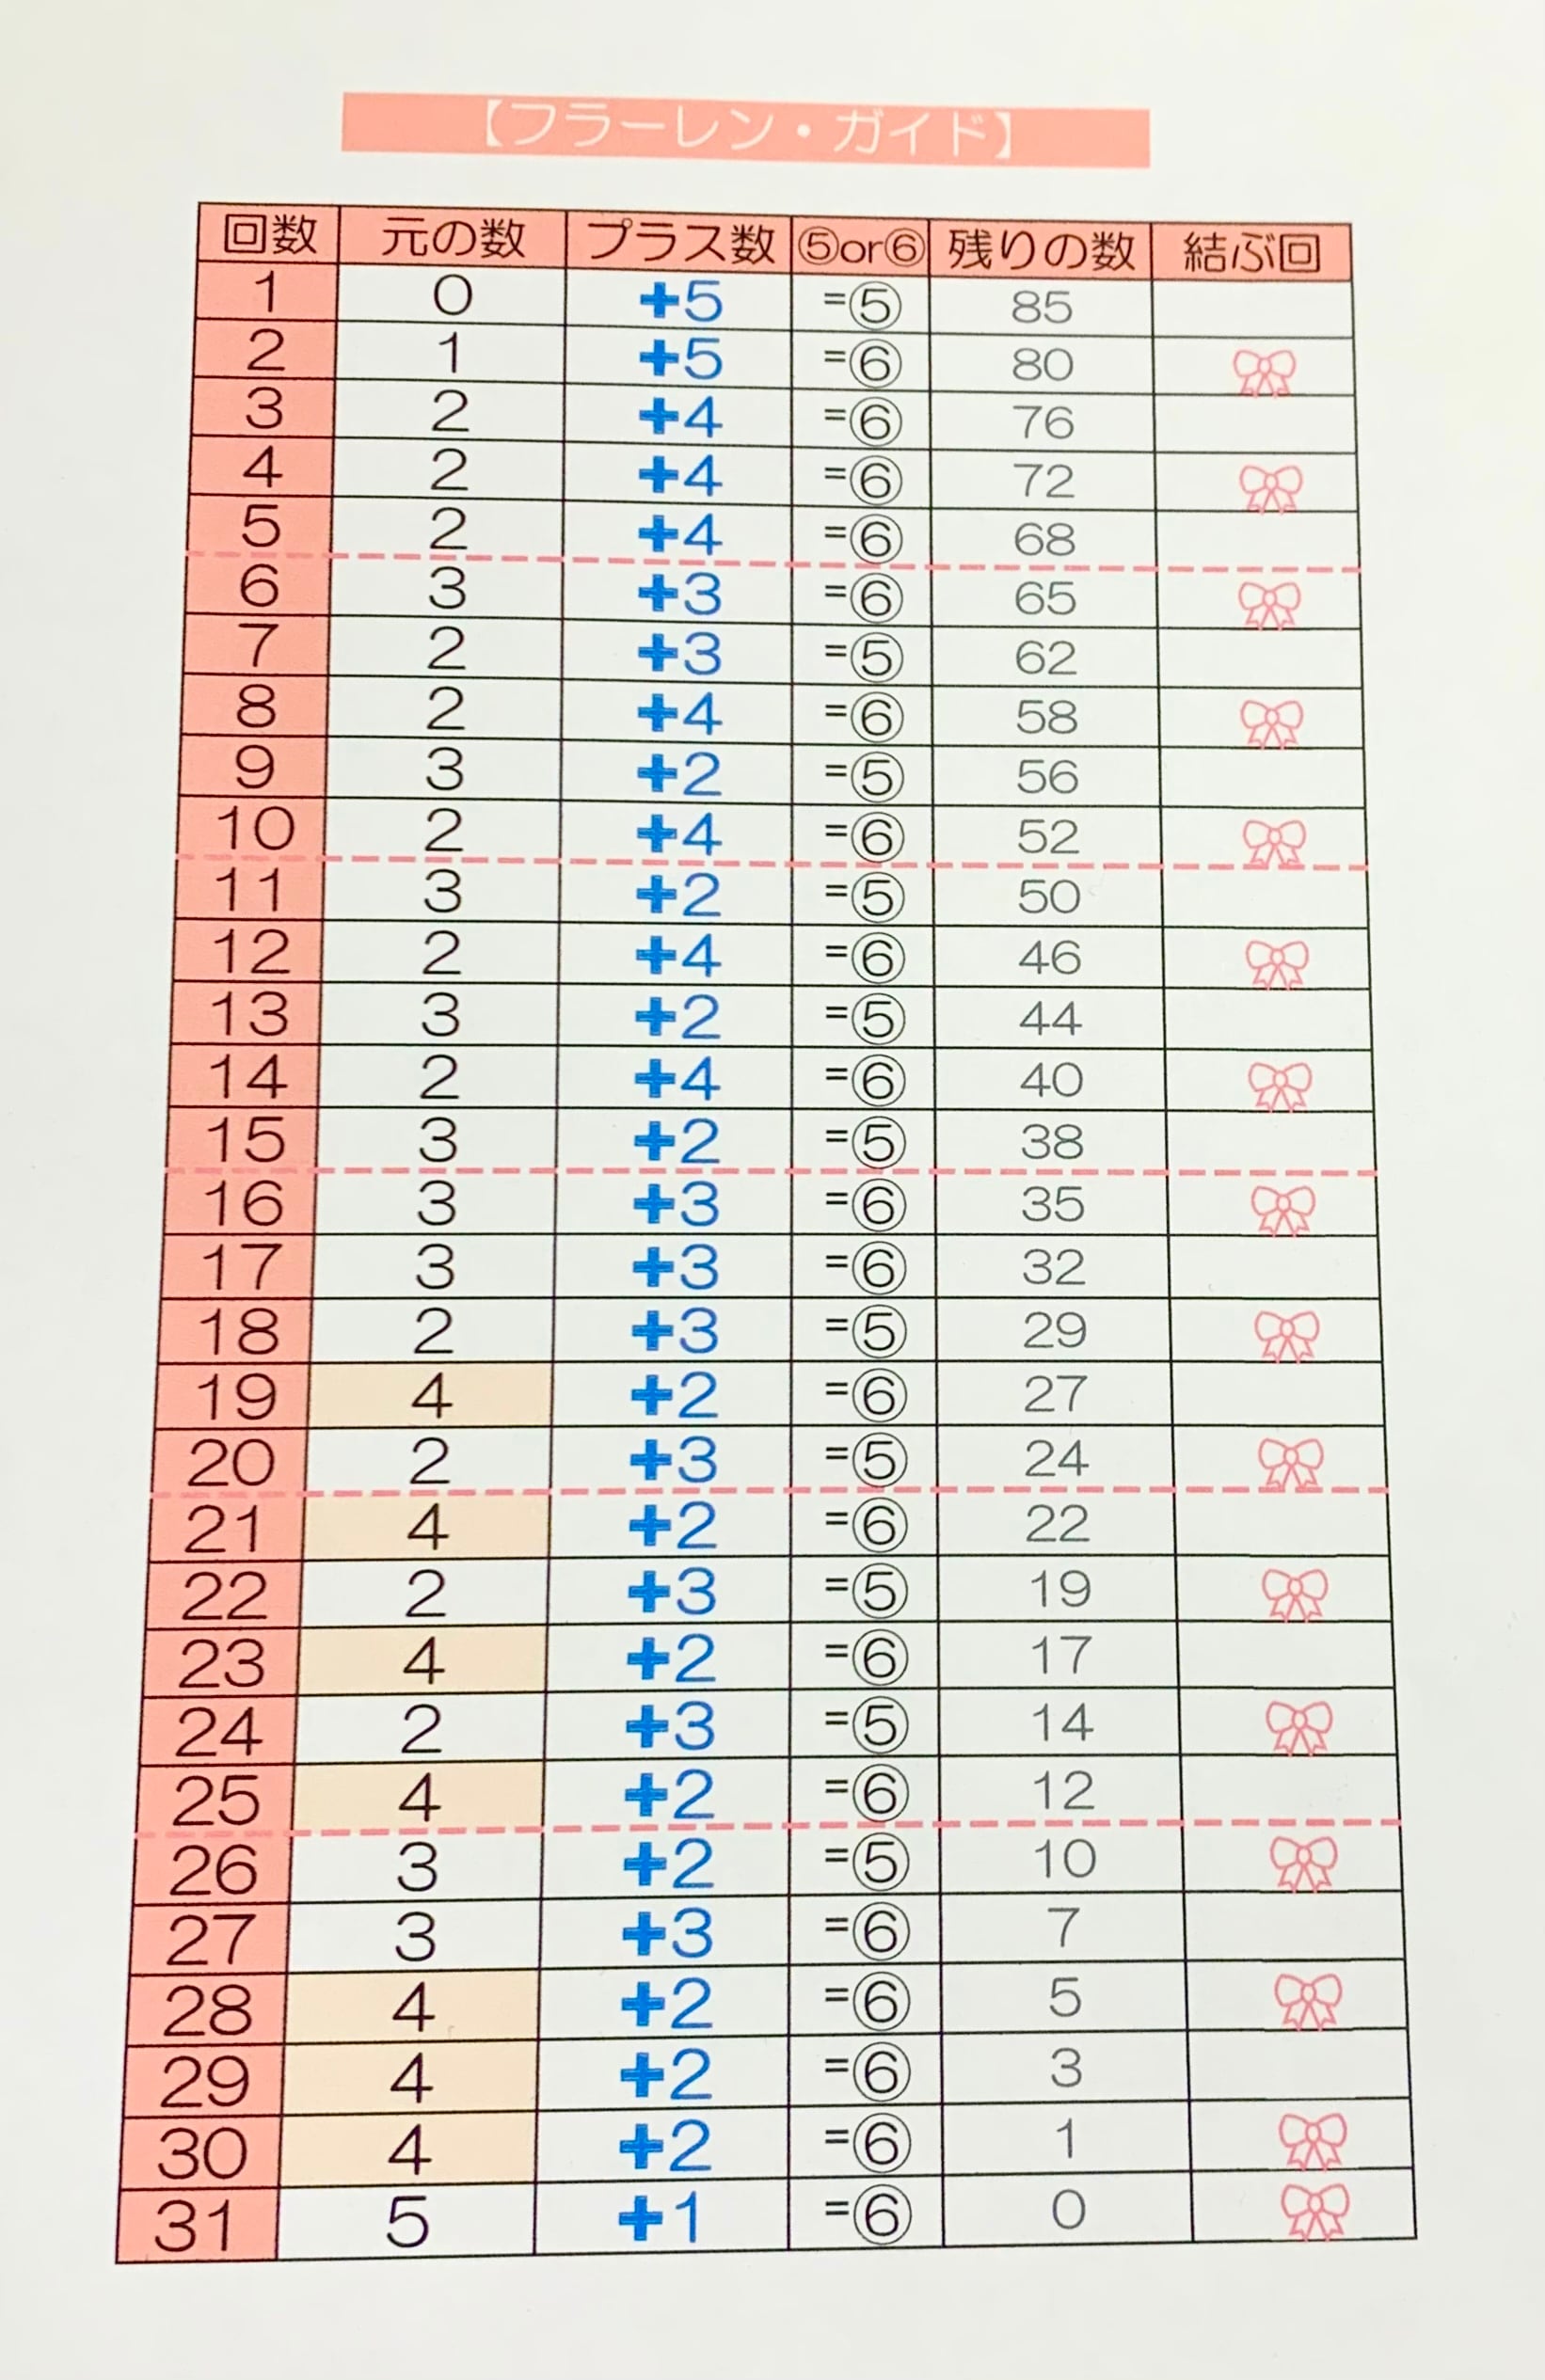 【フラーレン・ガイド】
回数 元の数 プラス数 ⑤or⑥ 残りの数 結ぶ回
1 0 +5 =⑤ 85
2 1 +5 =⑥ 80
3 2 +4 =⑥ 76
4 2 +4 =⑥ 72
5 2 +4 =⑥ 68
6 3 +3 =⑥ 65
7 2 +3 =⑤ 62
8 2 +4 =⑥ 58
9 3 +2 =⑤ 56
10 2 +4 =⑥ 52
11 3 +2 =⑤ 50
12 2 +4 =⑥ 46
13 3 +2 =⑤ 44
14 2 +4 =⑥ 40
15 3 +2 =⑤ 38
16 3 +3 =⑥ 35
17 3 +3 =⑥ 32
18 2 +3 =⑤ 29
19 4 +2 =⑥ 27
20 2 +3 =⑤ 24
21 4 +2 =⑥ 22
22 2 +3 =⑤ 19
23 4 +2 =⑥ 17
24 2 +3 =⑤ 14
25 4 +2 =⑥ 12
26 3 +2 =⑤ 10
27 3 +3 =⑥ 7
28 4 +2 =⑥ 5
29 4 +2 =⑥ 3
30 4 +2 =⑥ 1
31 5 +1 =⑥ 0